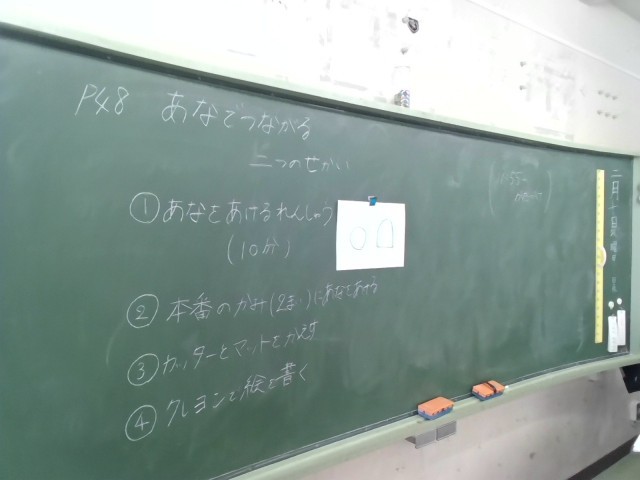 P48 あなでつながる
二つのせかい
① あなをあけるれんしゅう
(10分)
② 本番のかみ(2まい)にあなをあける
③ カッターとマットをかえす
④ クレヨンで絵を書く